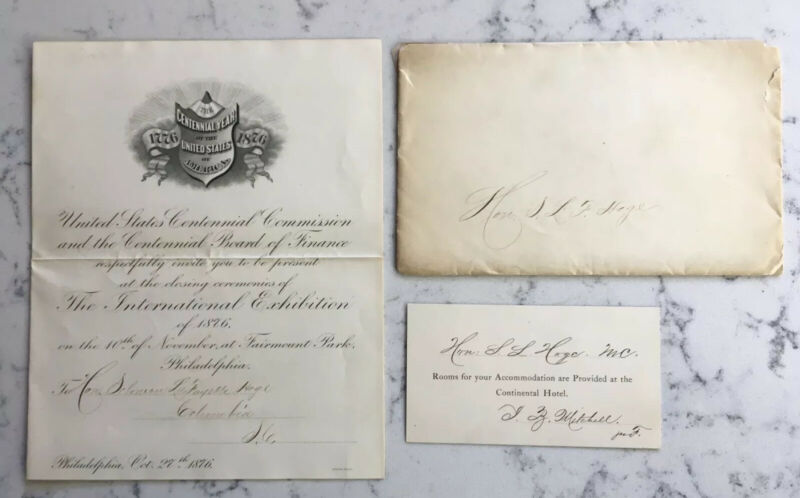 1776
CENTENNIAL YEAR
OF THE
UNITED STATES
OF
AMERICA
1876
United States Centennial Commission
and the Centennial Board of Finance
respectfully invite you to be present
at the closing ceremonies of
The International Exhibition
of 1876.
on the 10th of November, at Fairmount Park,
Philadelphia.
To Hon. Solomon LaFayette Hoge
Columbia
S.C.
Philadelphia, Oct. 27th 1876.
Hon. S. L. Hoge
Hon. S. L. Hoge M.C.
Rooms for your Accommodation are Provided at the
Continental Hotel.
Mitchell.